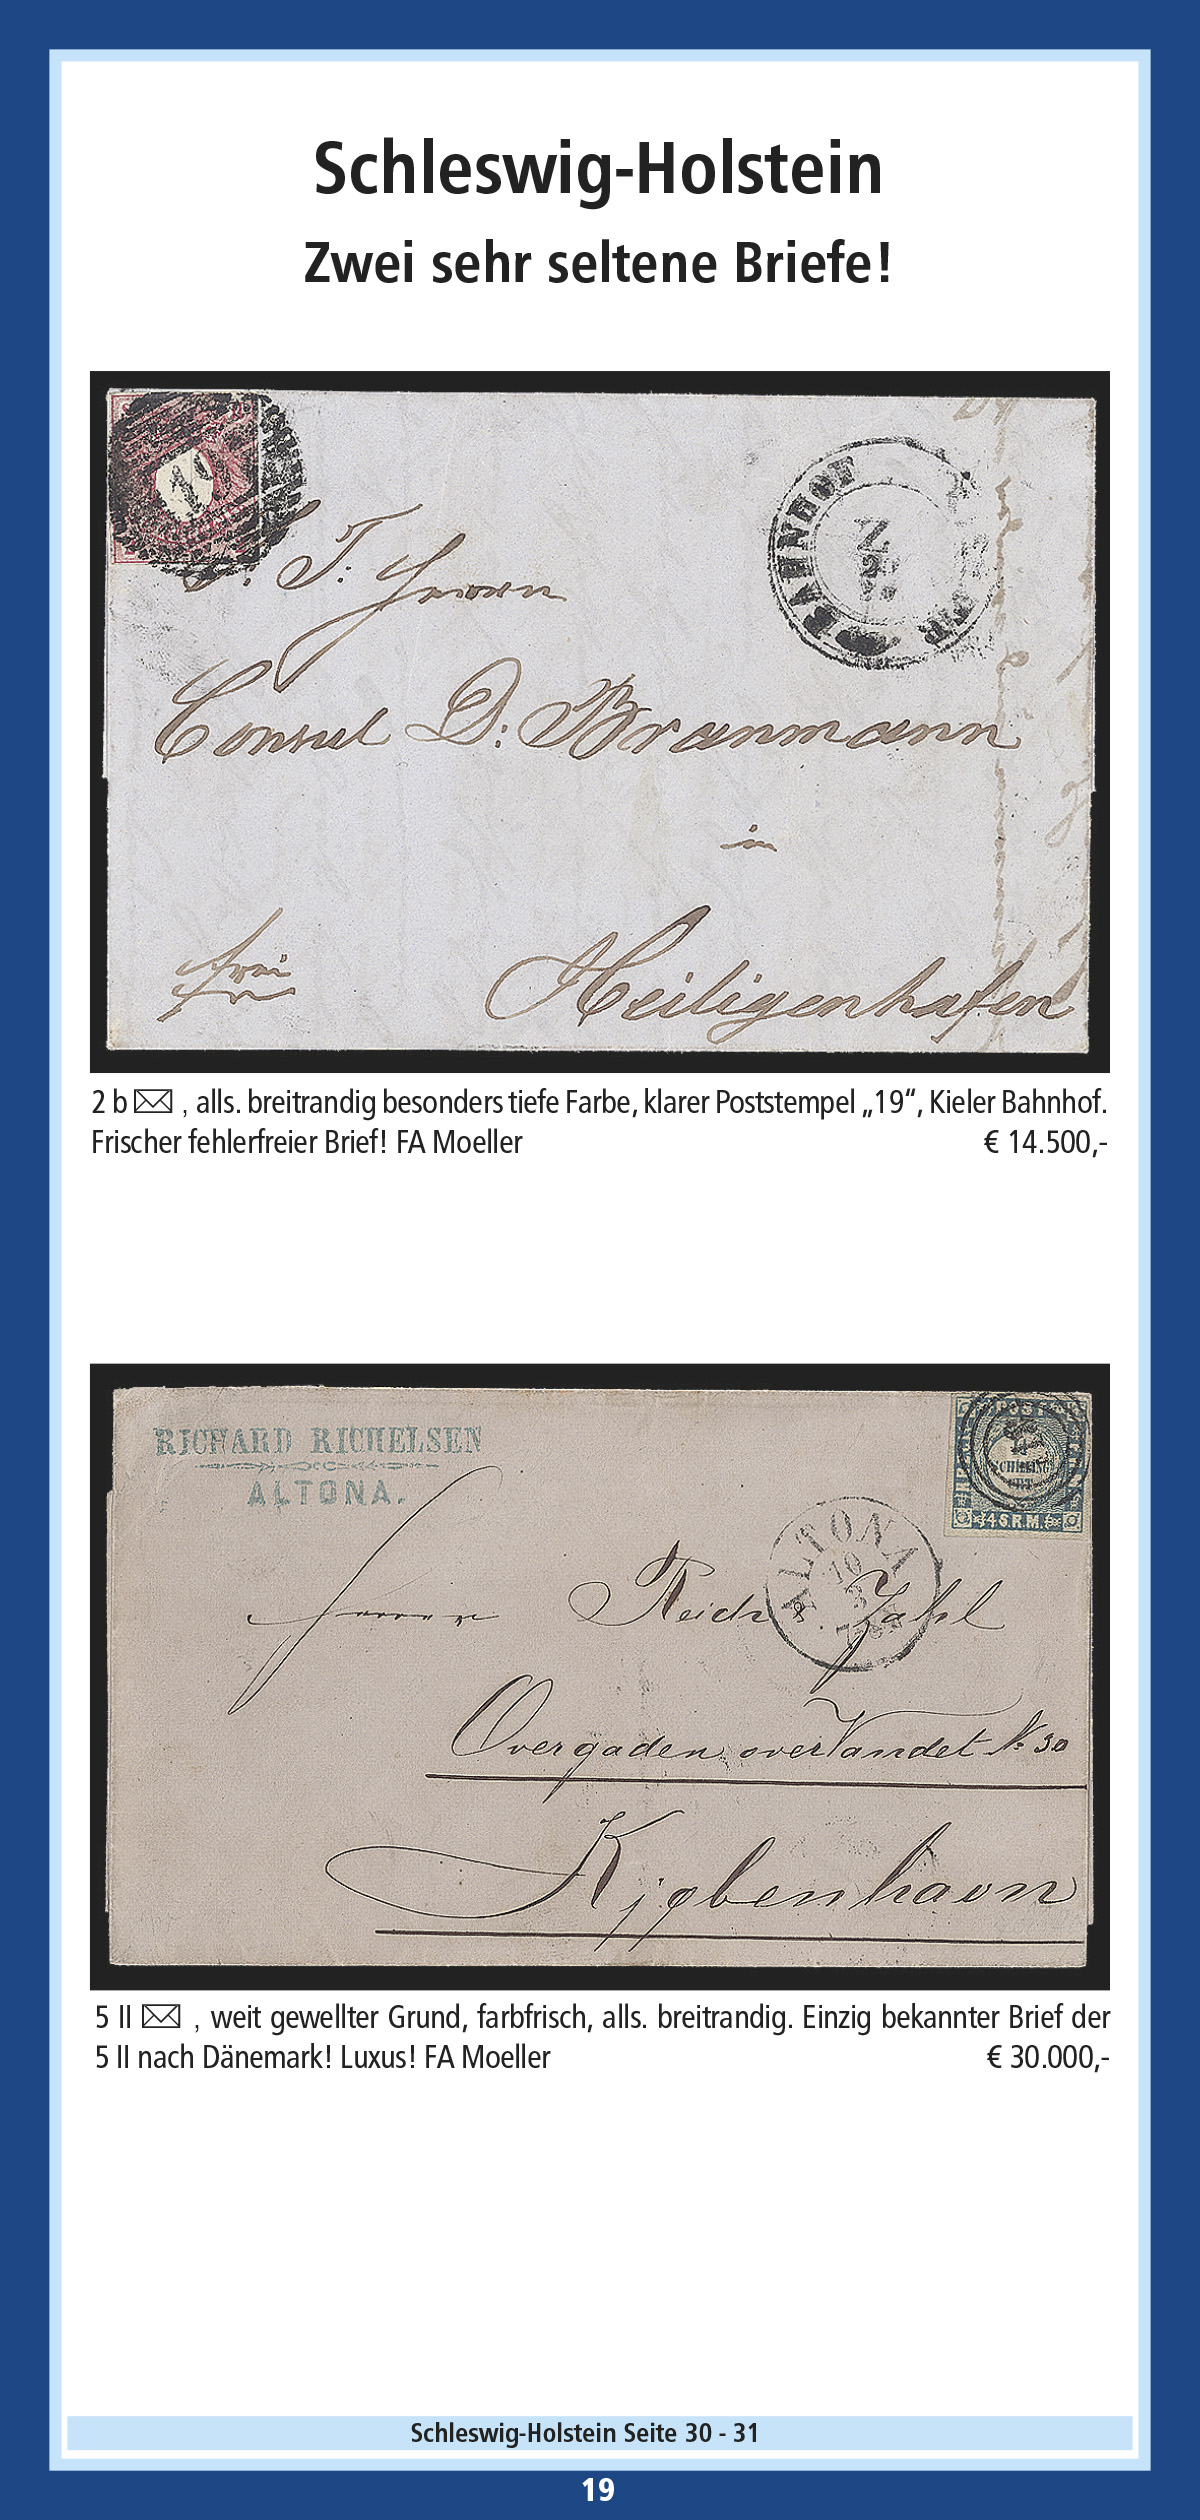 Schleswig-Holstein
Zwei sehr seltene Briefe!
BAHNHOF
Z
T: Herrn
Consul D: Branmann
in
frei
Heiligenhafen
2 b ✉ , alls. breitrandig besonders tiefe Farbe, klarer Poststempel „19“, Kieler Bahnhof.
Frischer fehlerfreier Brief! FA Moeller € 14.500,-
RICHARD RICHELSEN
ALTONA.
POST
SCHILLING
CRT
1¼ S.R.M.
ALTONA
10
3
Herrer Reich & Zahl
Overgaden over Vandet No 30
Kjøbenhavn
5 II ✉ , weit gewellter Grund, farbfrisch, alls. breitrandig. Einzig bekannter Brief der
5 II nach Dänemark! Luxus! FA Moeller € 30.000,-
Schleswig-Holstein Seite 30 - 31
19